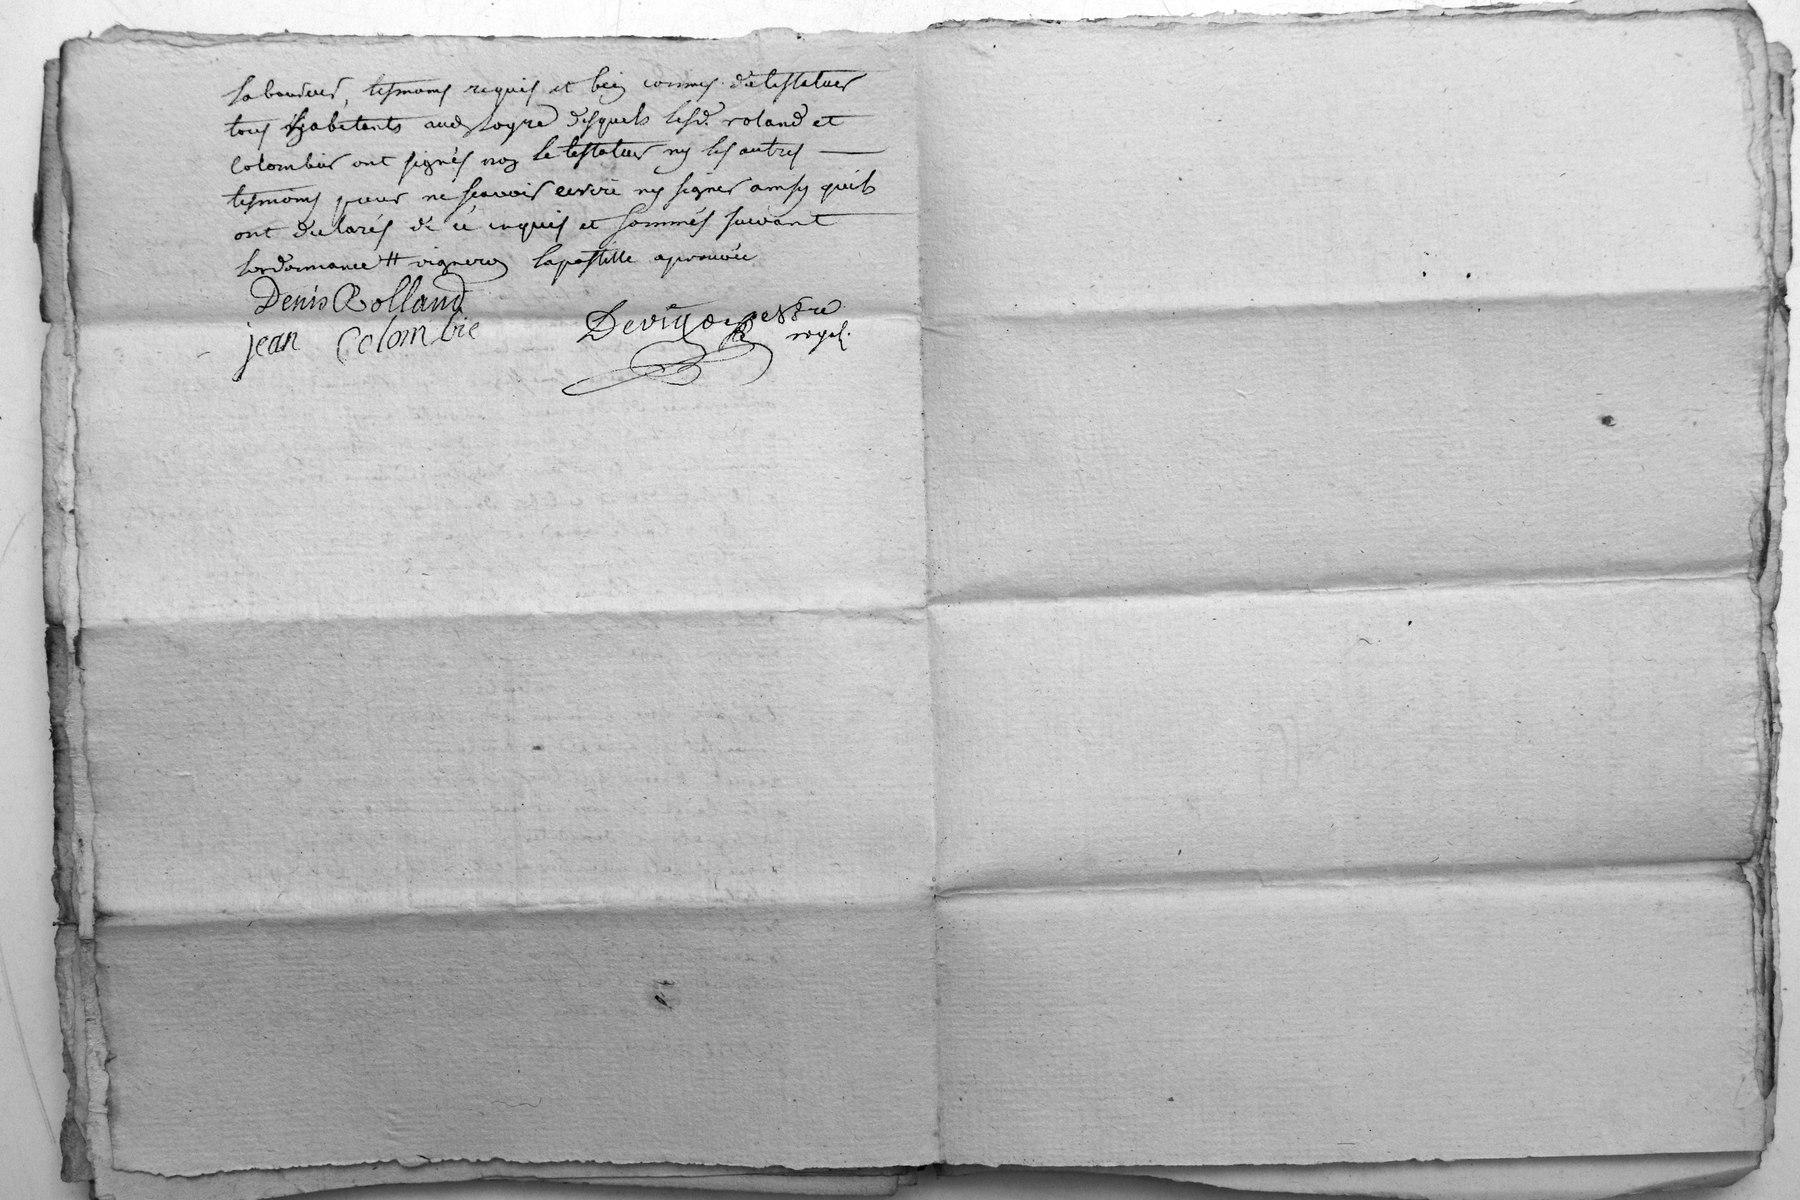 laboureur, tesmoins requis et bien connus du testateur
tous habitants aud Loyre desquels lesd. roland et
Colombier ont signés non le testateur ny les autres
tesmoins pour ne scavoir ecrire ny signer ainsy quils
ont déclarés de ce enquis et sommés suivant
lordonnance # vigneron lapostille aprouvée
Denis Rolland
jean Colombie
royal.